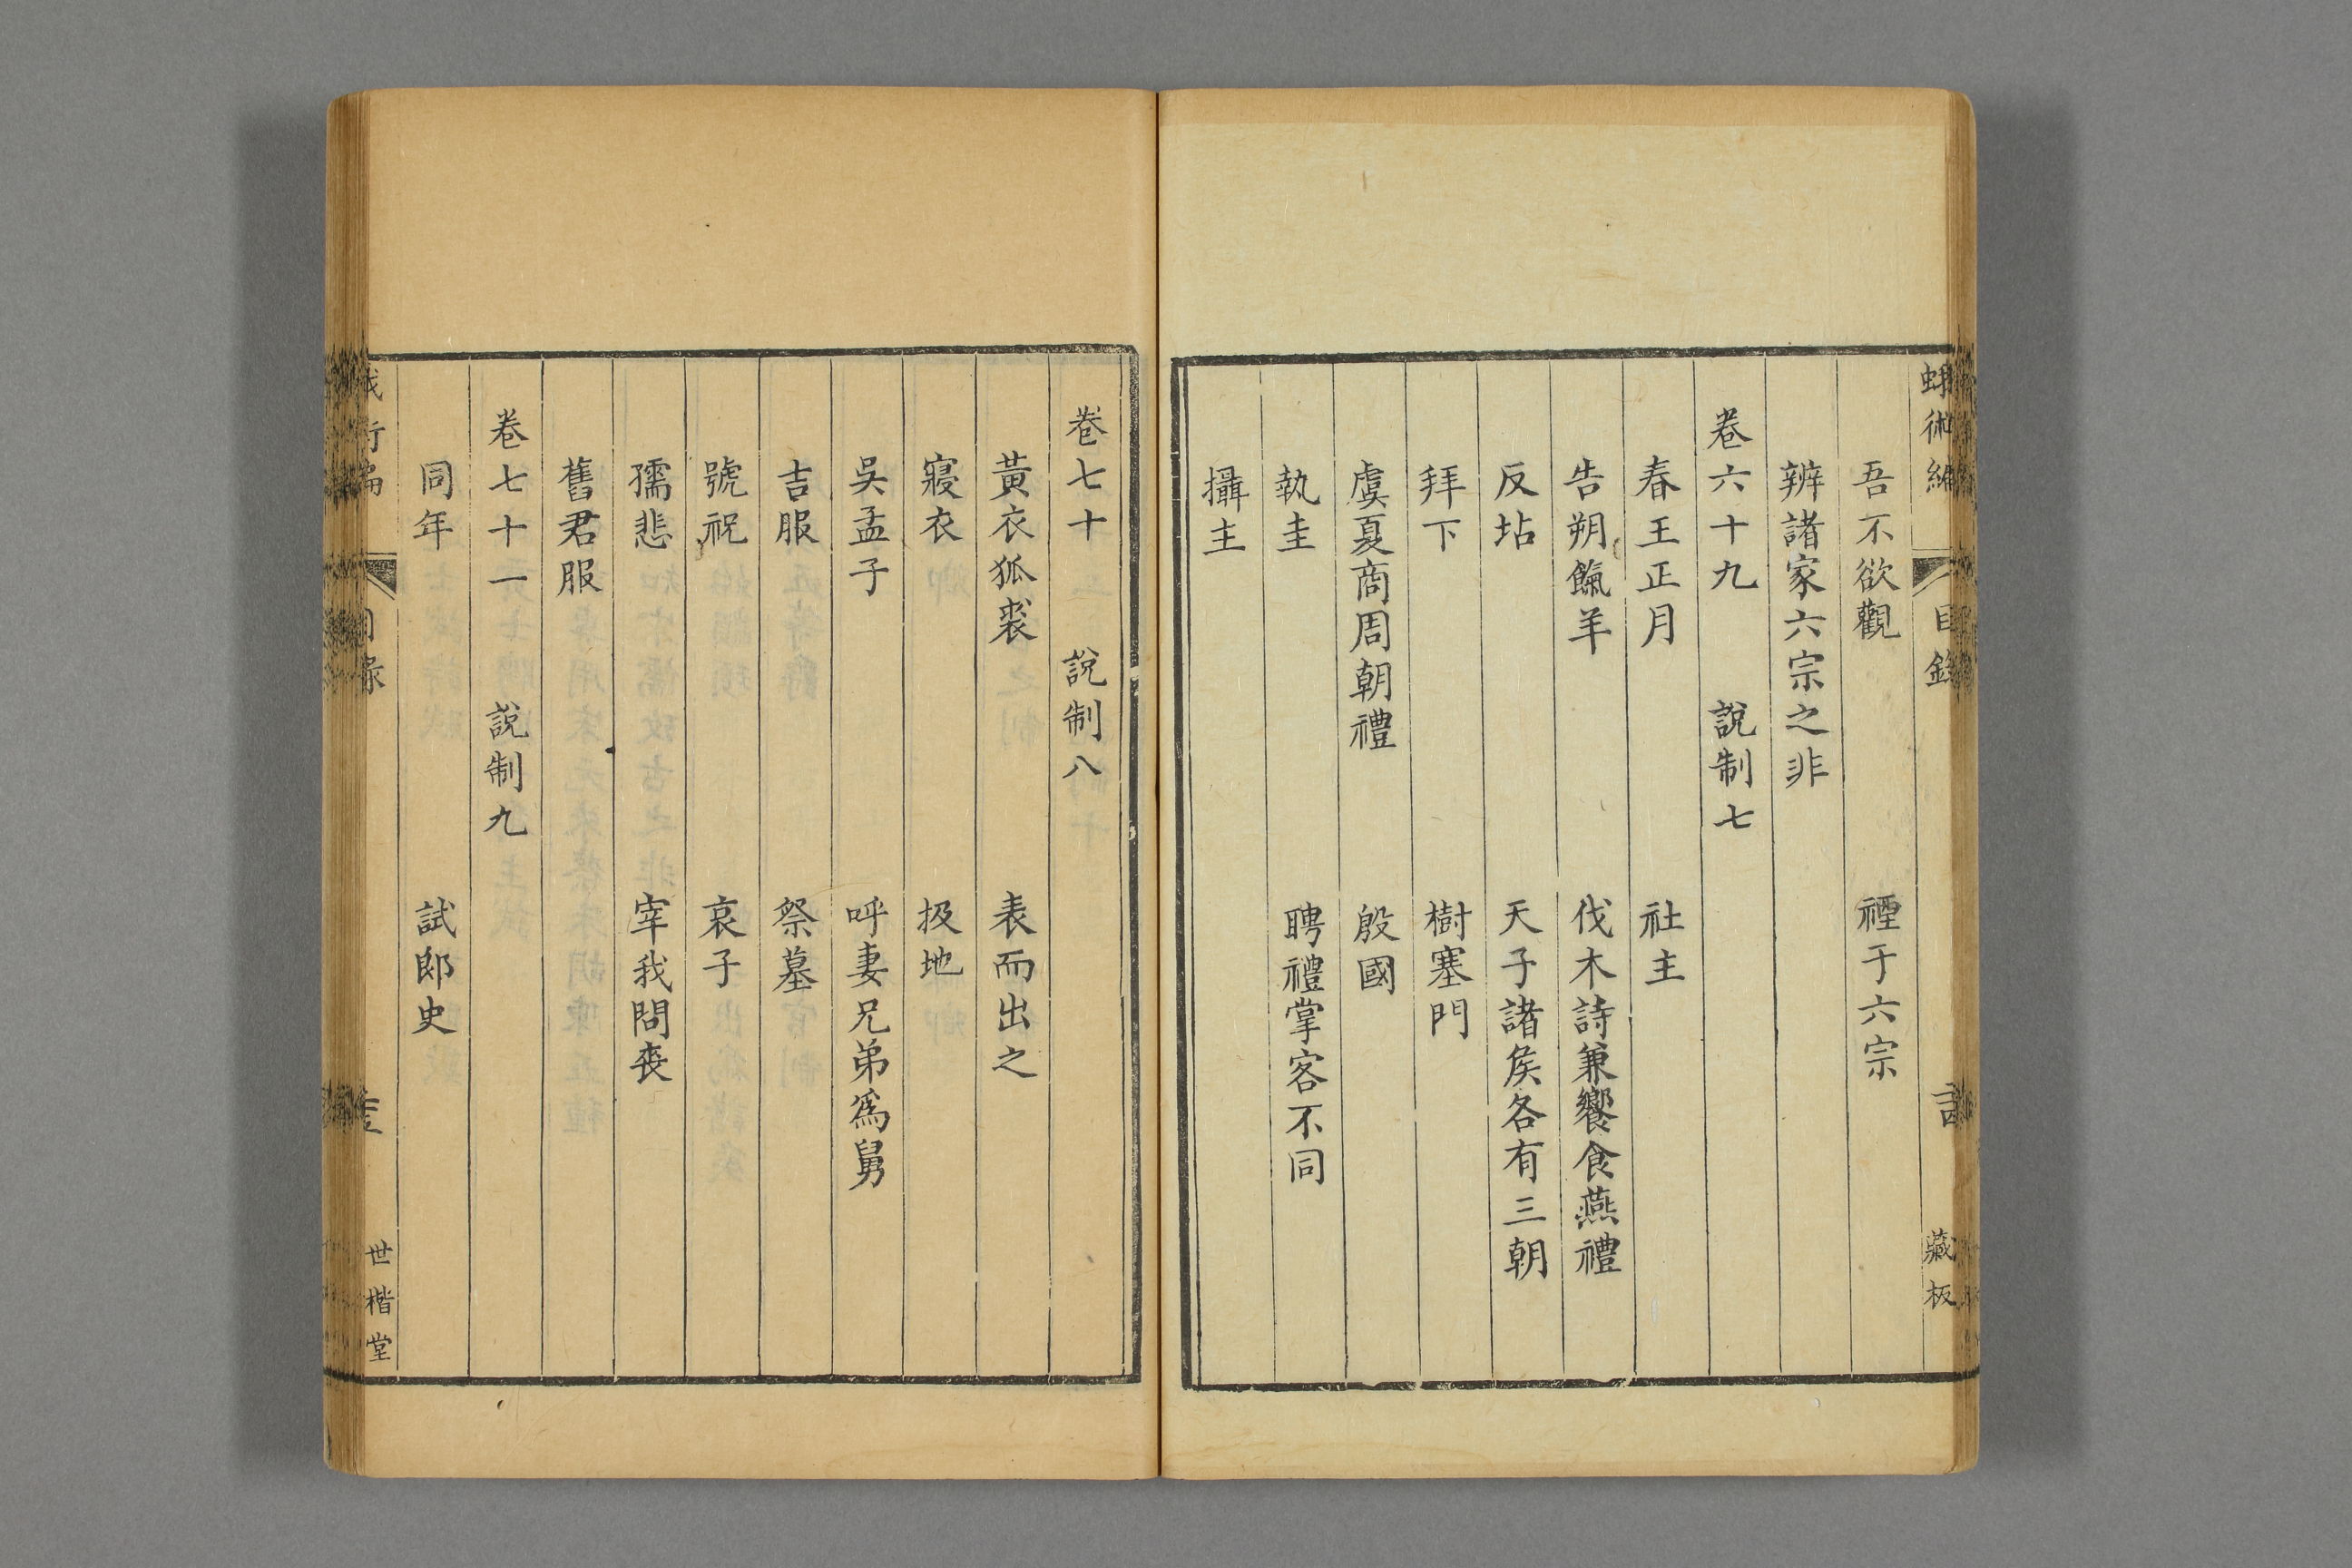 蛾術編
目錄
藏板
吾不欲觀　禋于六宗
辨諸家六宗之非
卷六十九　說制七
春王正月　社主
告朔餼羊　伐木詩兼饗食燕禮
反坫　天子諸侯各有三朝
拜下　樹塞門
虞夏商周朝禮　殷國
執圭　聘禮掌客不同
攝主
卷七十　說制八
黃衣狐裘　表而出之
寢衣　扱地
吳孟子　呼妻兄弟爲舅
吉服　祭墓
號祝　哀子
孺悲　宰我問喪
舊君服
卷七十一　說制九
同年　試郎史
世楷堂